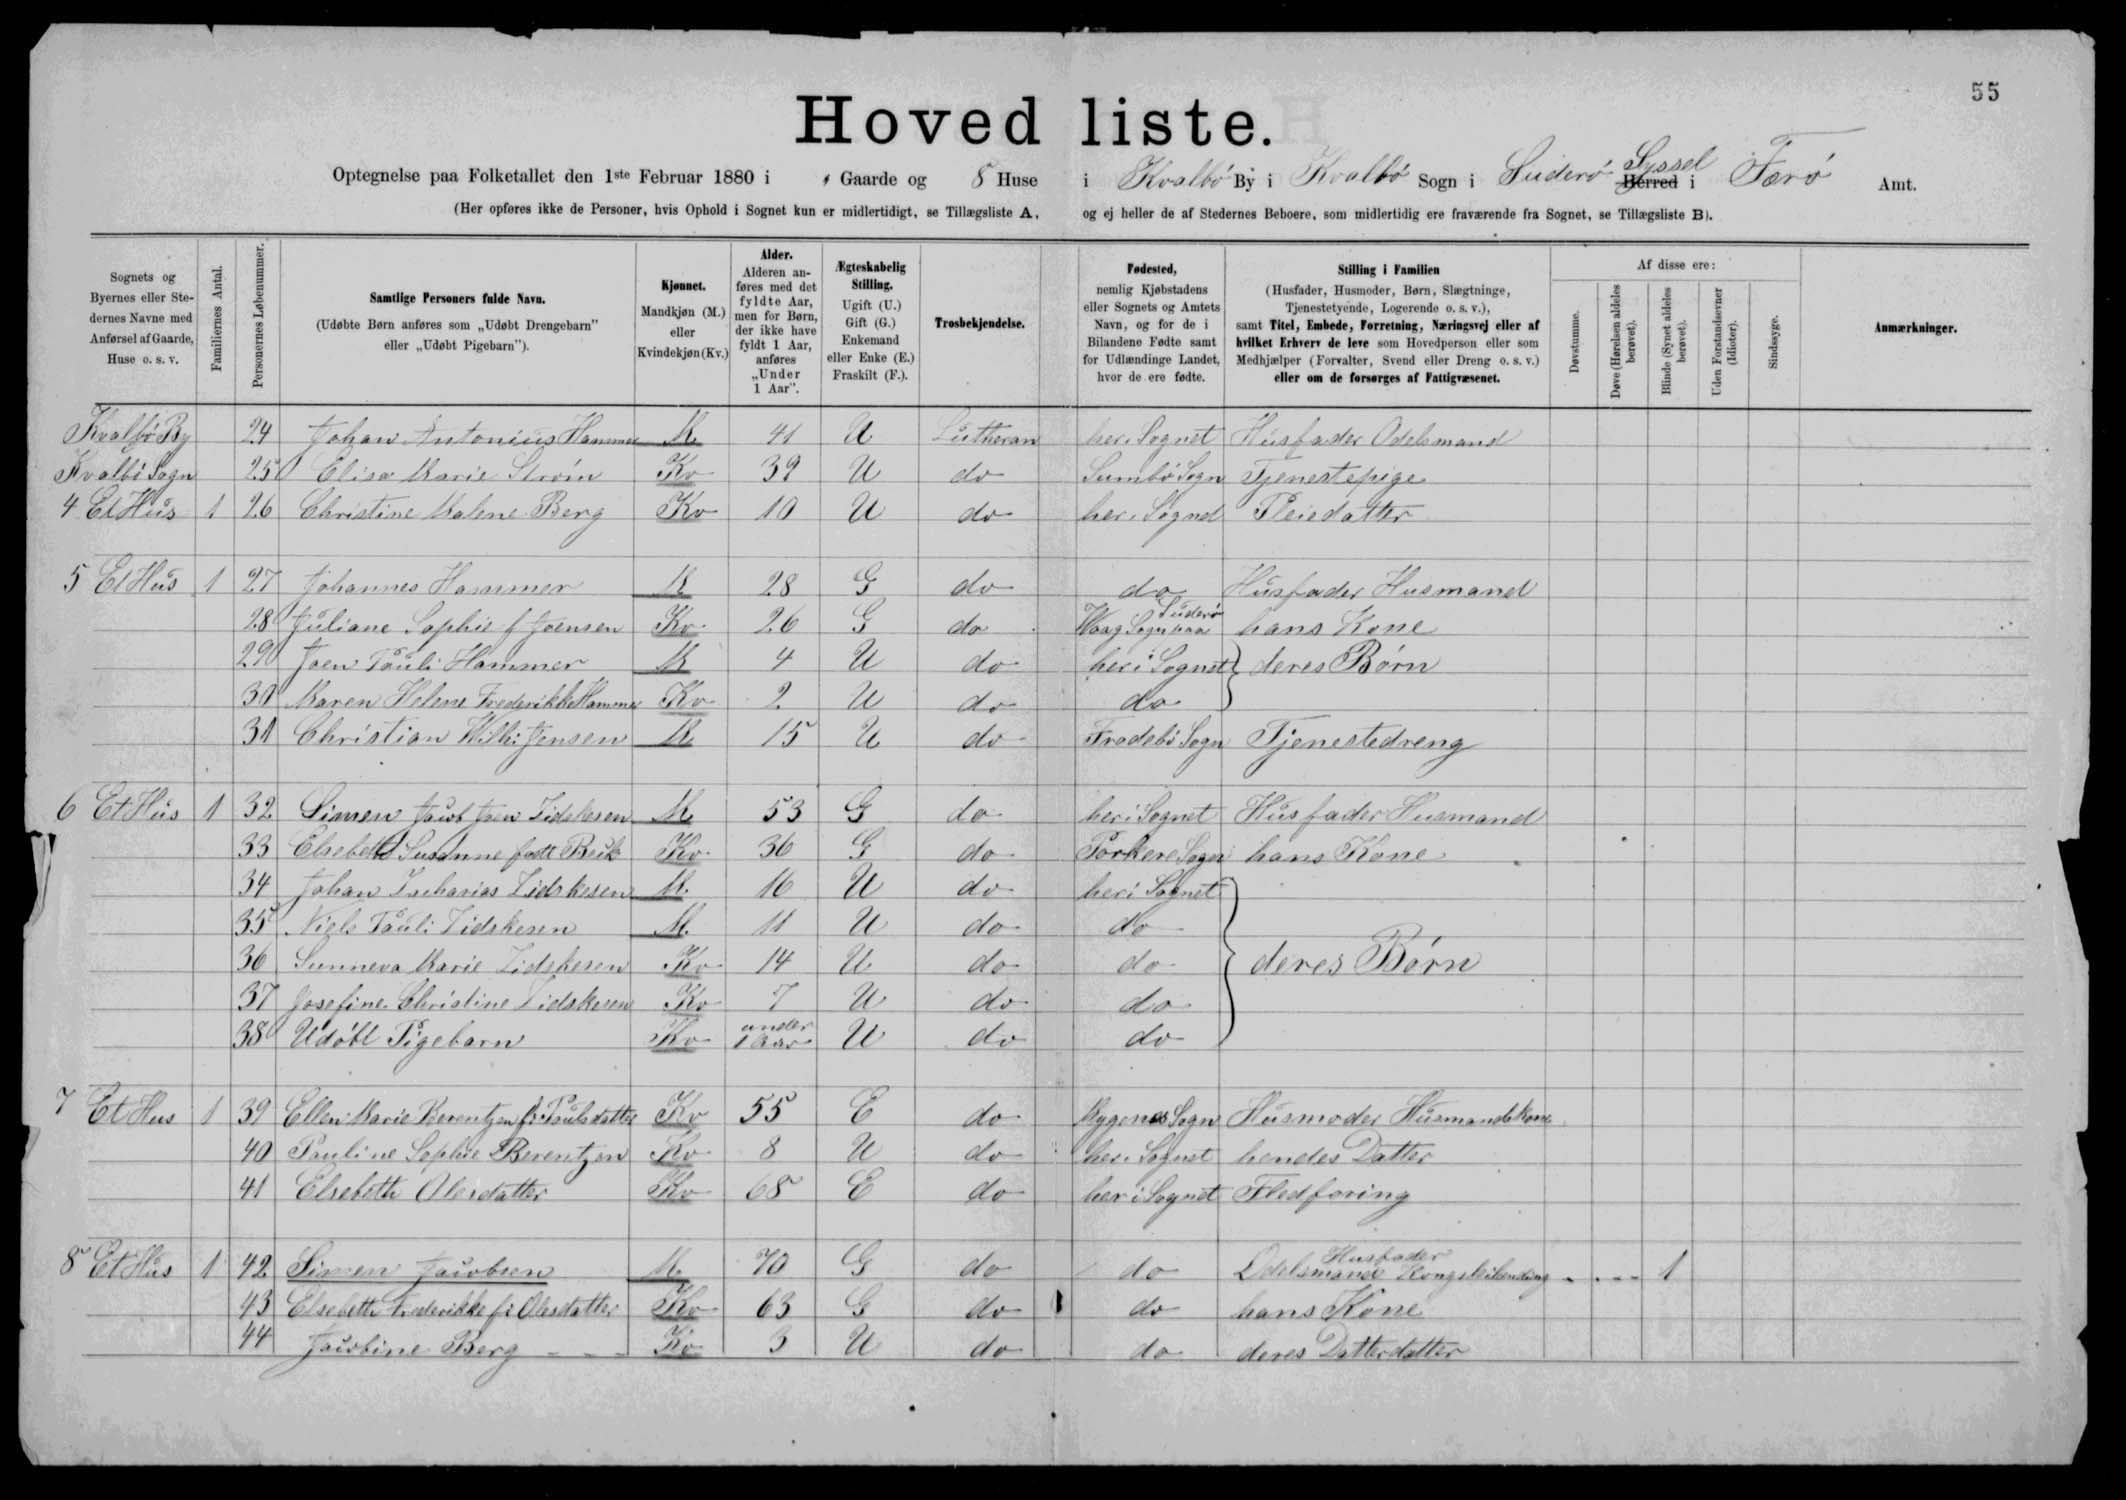 55
Hovedliste.
Optegnelse paa Folketallet den 1ste Februar 1880 i " Gaarde og 8 Huse i Kvalbö By i Kvalbö Sogn i Suderö Syssel Herred i Færö Amt.
(Her opføres ikke de Personer, hvis Ophold i Sognet kun er midlertidigt, se Tillægsliste A, og ej heller de af Stedernes Beboere, som midlertidig ere fraværende fra Sognet, se Tillægsliste B).
Sognets og Byernes eller Stedernes Navne med Anførsel af Gaarde, Huse o. s. v.
Familiernes Antal.
Personernes Løbenummer.
Samtlige Personers fulde Navn.
(Udøbte Børn anføres som „Udøbt Drengebarn" eller „Udøbt Pigebarn").
Kjønnet.
Mandkjøn (M.) eller Kvindekjøn (Kv.)
Alder.
Alderen anføres med det fyldte Aar, men for Børn, der ikke have fyldt 1 Aar, anføres „Under 1 Aar".
Ægteskabelig Stilling.
Ugift (U.) Gift (G.) Enkemand eller Enke (E.) Fraskilt (F.).
Trosbekjendelse.
Fødested,
nemlig Kjøbstadens eller Sognets og Amtets Navn, og for de i Bilandene Fødte samt for Udlændinge Landet, hvor de ere fødte.
Stilling i Familien
(Husfader, Husmoder, Børn, Slægtninge, Tjenestetyende, Logerende o. s. v.), samt Titel, Embede, Forretning, Næringsvej eller af hvilket Erhverv de leve som Hovedperson eller som Medhjælper (Forvalter, Svend eller Dreng o. s. v.) eller om de forsørges af Fattigvæsenet.
Af disse ere:
Døvstumme.
Døve (Hørelsen aldeles berøvet).
Blinde (Synet aldeles berøvet).
Uden Forstandsevner (Idioter).
Sindssyge.
Anmærkninger.
Kvalbö By 24 Johan Antonius Hammer M 41 U Lutheran her i Sognet Husfader Odelsmand
Kvalbö Sogn 25 Elisa Marie Ström Kv 39 U do Sumbö Sogn Tjenestepige
4 Et Hus 1 26 Christine Malene Berg Kv 10 U do her i Sognet Pleiedatter
5 Et Hus 1 27 Johannes Hammer M 28 G do do Husfader Husmand
28 Juliane Sophie f Joensen Kv 26 G do Waag Sogn paa Suderö hans Kone
29 Joen Pauli Hammer M 4 U do her i Sognet } deres Børn
30 Maren Helene Frederikke Hammer Kv 2 U do do
31 Christian Wilh: Jensen M 15 U do Frodebö Sogn Tjenestedreng
6 Et Hus 1 32 Simen Jacob Joen Zidskesen M 53 G do her i Sognet Husfader Husmand
33 Elsebeth Susanne født Beck Kv 36 G do Porkere Sogn hans Kone
34 Johan Zacharias Zidskesen M 16 U do her i Sognet
35 Niels Pauli Zidskesen M 11 U do do
36 Sunneva Marie Zidskesen Kv 14 U do do } deres Börn
37 Josefine Christine Zidskesen Kv 7 U do do
38 Udöbt Pigebarn Kv under 1 Aar U do do
7 Et Hus 1 39 Ellen Marie Berentzen f: Poulsdatter Kv 55 E do Sogn Husmoder Husmandskone
40 Pauline Sophie Berentzen Kv 8 U do her i Sognet hendes Datter
41 Elsebeth Olesdatter Kv 68 E do her i Sognet Fledföring
8 Et Hus 1 42 Simen Jacobsen M 70 G do do Husfader Odelsmand 1
43 Elsebeth Frederikke f: Olesdatter Kv 63 G do do hans Kone
44 Jacobine Berg Kv 3 U do do deres Datterdatter